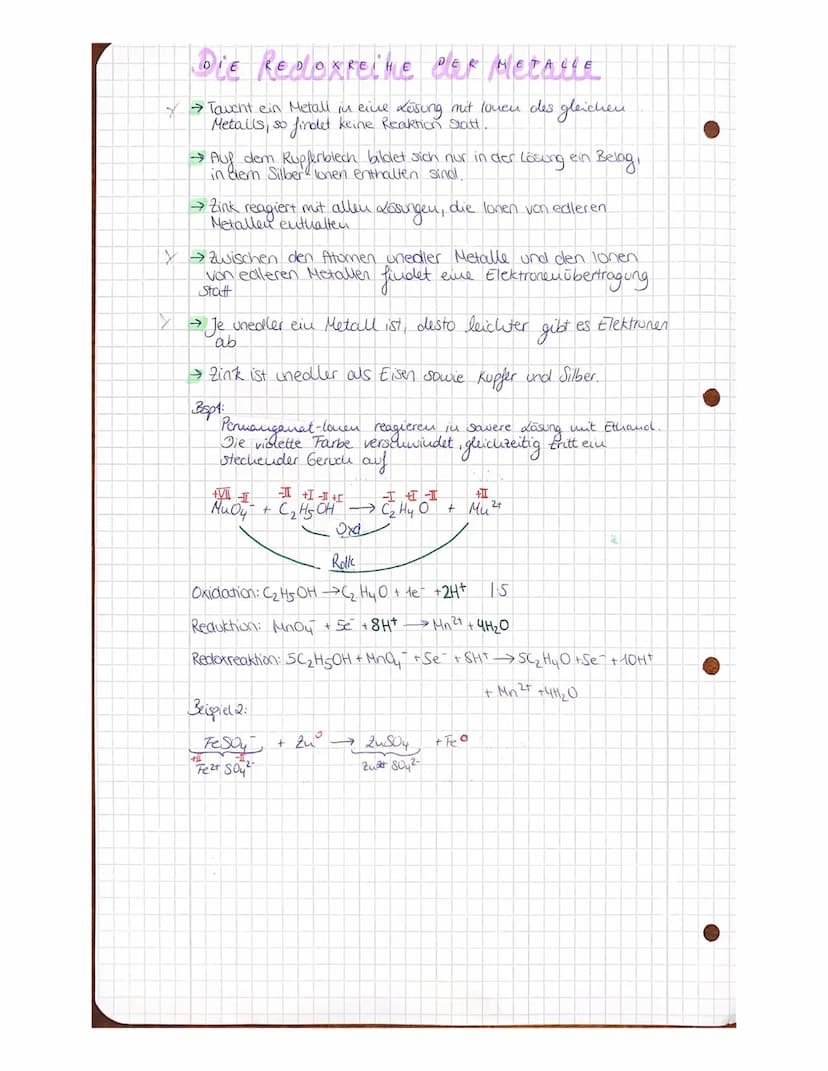 Die Redoxreihe der Metalle
→ Taucht ein Metall in eine Lösung mit Ionen des gleichen
Metalls, so findet keine Reaktion statt.
→ Auf dem Kupferblech bildet sich nur in der Lösung ein Belag,
in dem Silber Ionen enthalten sind.
→ Zink reagiert mit allen Lösungen, die Ionen von edleren
Metallen enthalten
→ Zwischen den Atomen unedler Metalle und den Ionen
von edleren Metallen findet eine Elektronenübertragung
statt
→ Je unedler ein Metall ist, desto leichter gibt es Elektronen
ab
→ Zink ist unedler als Eisen sowie Kupfer und Silber.
Bsp1:
Permanganat-Ionen reagieren in saure Lösung mit Ethanol.
Die violette Farbe verschwindet, gleichzeitig tritt ein
stechender Geruch auf
+VII -II -II +I -II +I -I +I -II +II
MnO₄⁻ + C₂H₅OH → C₂H₄O + Mn²⁺
Oxd
Oxidation: C₂H₅OH → C₂H₄O + 1e⁻ + 2H⁺ | 5
Reduktion: MnO₄⁻ + 5e⁻ + 8H⁺ → Mn²⁺ + 4H₂O
Redoxreaktion: 5C₂H₅OH + MnO₄⁻ + 5e⁻ + 8H⁺ → 5C₂H₄O + 5e⁻ + 10H⁺
+ Mn²⁺ + 4H₂O
Beispiel 2:
FeSO₄⁻ + Zn⁰ → ZnSO₄ + Fe⁰
+II -II
Fe²⁺ SO₄²⁻ Zn²⁺ SO₄²⁻